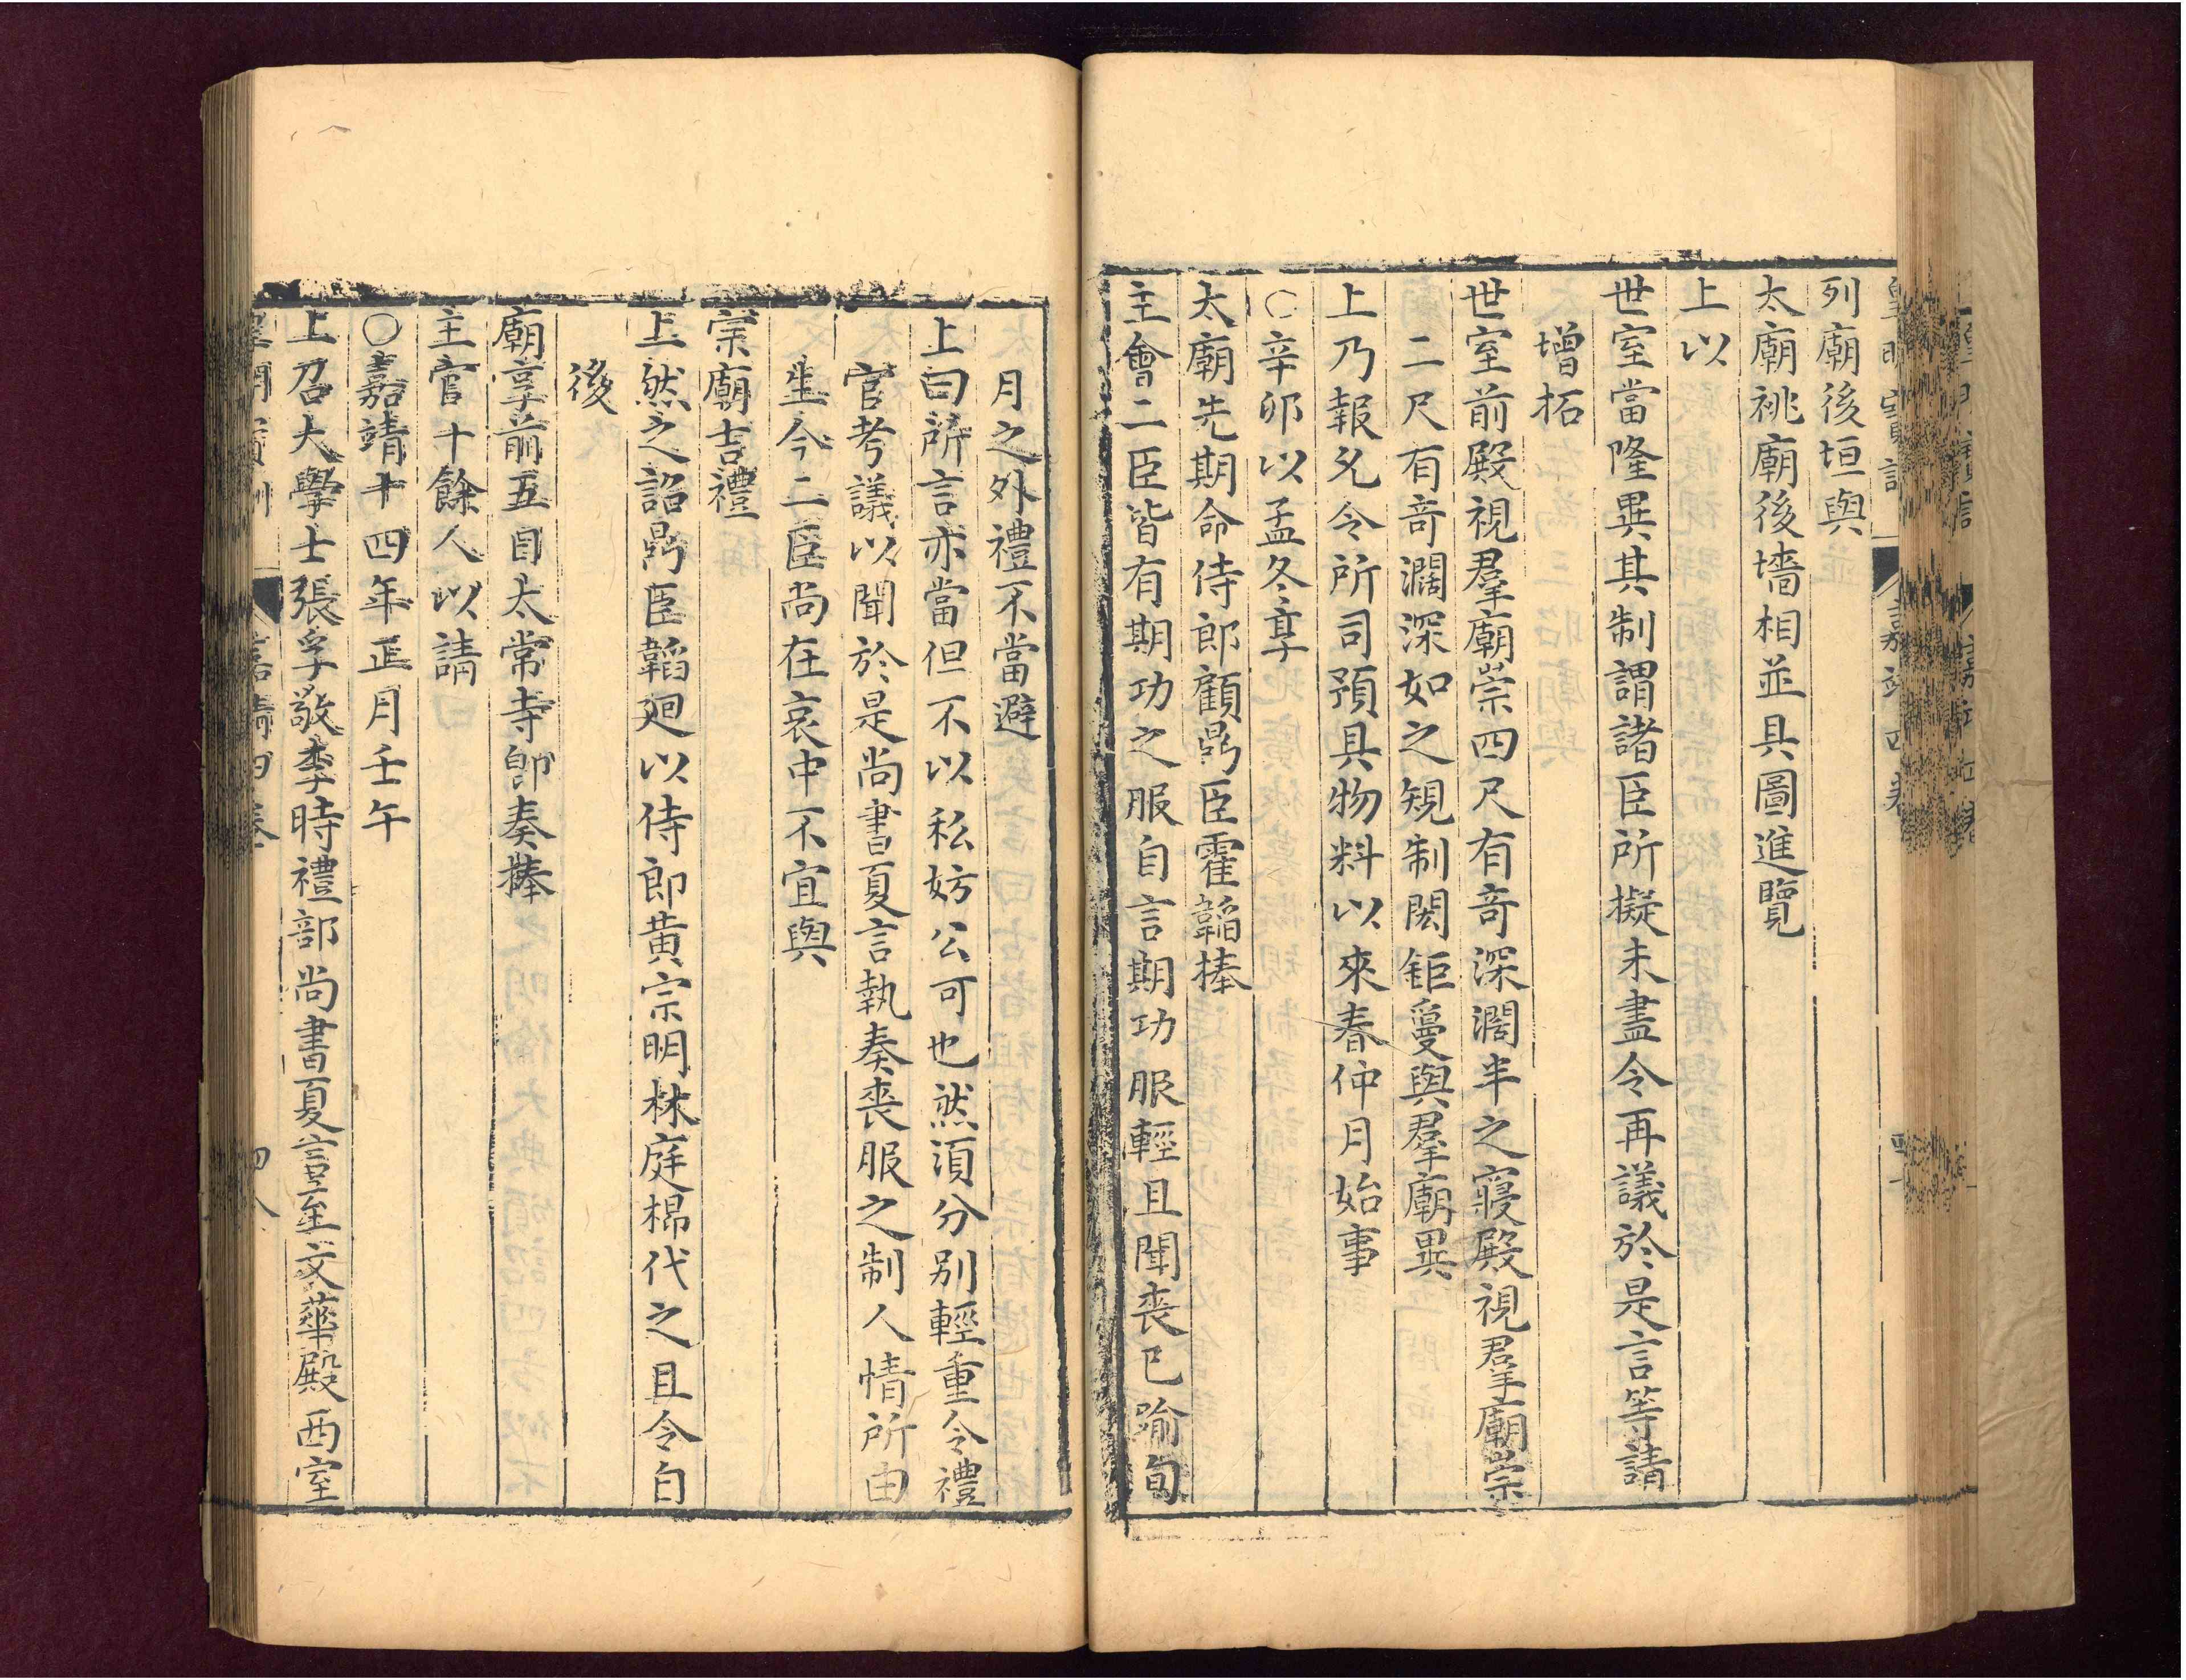 列廟後垣與
太廟祧廟後墻相並具圖進覽
上以
世室當隆異其制謂諸臣所擬未盡令再議於是言等請
增拓
世室前殿視羣廟崇四尺有奇深濶半之寢殿視羣廟崇
二尺有奇濶深如之規制閎鉅蔓與羣廟異
上乃報允令所司預具物料以來春仲月始事
○辛卯以孟冬享
太廟先期命侍郎顧鼎臣霍韜捧
主會二臣皆有期功之服自言期功服輕且聞喪已踰旬
月之外禮不當避
上曰所言亦當但不以私妨公可也然須分別輕重令禮
官考議以聞於是尚書夏言執奏喪服之制人情所由
生今二臣尚在哀中不宜與
宗廟吉禮
上然之詔鼎臣韜廻以侍郎黃宗明林庭棉代之且令自
後
廟享前五日太常寺卽奏捧
主官十餘人以請
○嘉靖十四年正月壬午
上召大學士張孚敬李時禮部尚書夏言至文華殿西室